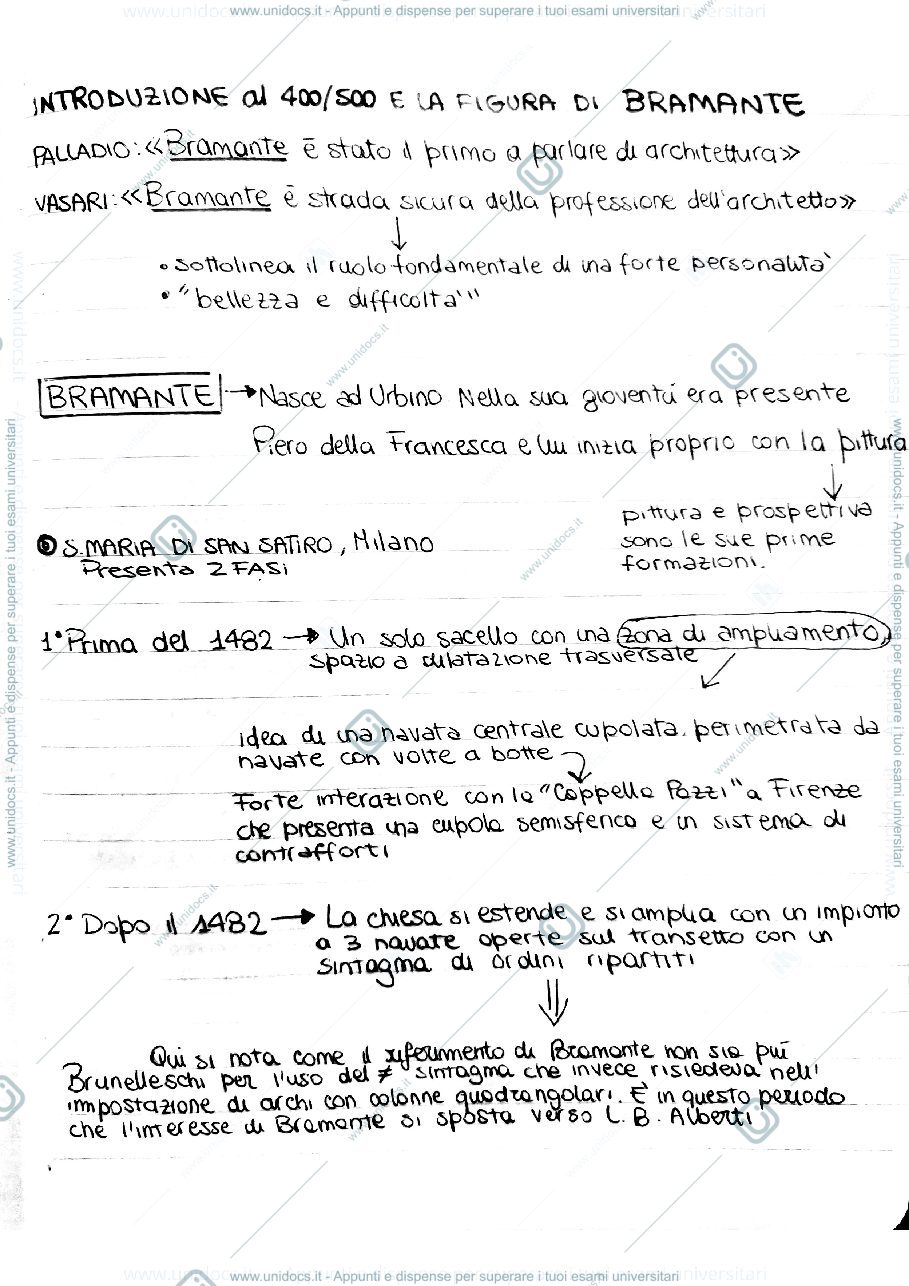 www.unidocs.it - Appunti e dispense per superare i tuoi esami universitari
INTRODUZIONE al 400/500 E LA FIGURA DI BRAMANTE
PALLADIO: «Bramante è stato il primo a parlare di architettura»
VASARI: «Bramante è strada sicura della professione dell'architetto»
• sottolinea il ruolo fondamentale di una forte personalità
• "bellezza e difficoltà"
BRAMANTE → Nasce ad Urbino Nella sua gioventú era presente
Piero della Francesca e lui inizia proprio con la pittura
pittura e prospettiva
sono le sue prime
formazioni.
S. MARIA DI SAN SATIRO, Milano
Presenta 2 FASI
1° Prima del 1482 → Un solo sacello con una zona di ampliamento,
spazio a dilatazione trasversale
idea di una navata centrale cupolata, perimetrata da
navate con volte a botte
Forte interazione con la "Cappella Pazzi" a Firenze
che presenta una cupola semisferica e un sistema di
contrafforti
2° Dopo il 1482 → La chiesa si estende e si amplia con un impianto
a 3 navate aperte sul transetto con un
sintagma di ordini ripartiti
Qui si nota come il riferimento di Bramante non sia piú
Brunelleschi per l'uso del ≠ sintagma che invece risiedeva nell'
impostazione di archi con colonne quadrangolari. È in questo periodo
che l'interesse di Bramante si sposta verso L. B. Alberti
www.unidocs.it - Appunti e dispense per superare i tuoi esami universitari